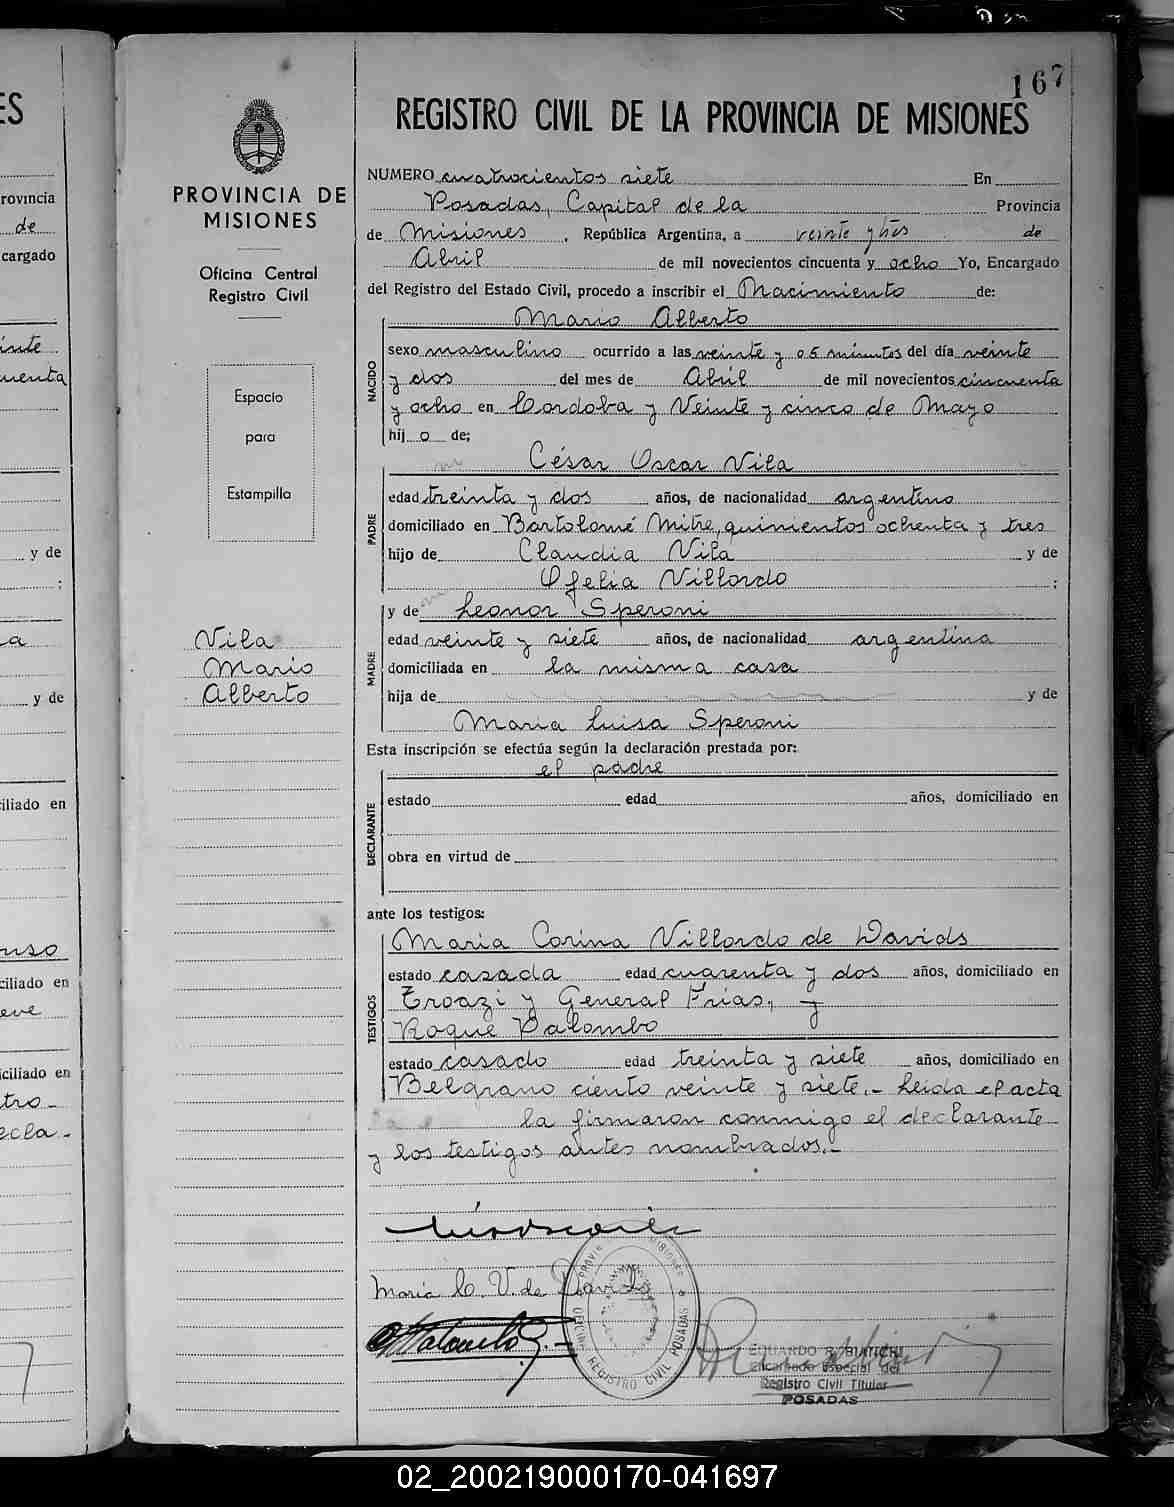 167
REGISTRO CIVIL DE LA PROVINCIA DE MISIONES
PROVINCIA DE
MISIONES
Oficina Central
Registro Civil
Espacio
para
Estampilla
Vila
Mario
Alberto
NUMERO cuatrocientos siete En
Posadas, Capital de la Provincia
de Misiones, República Argentina, a veinte y tres de
Abril de mil novecientos cincuenta y ocho Yo, Encargado
del Registro del Estado Civil, procedo a inscribir el Nacimiento de:
Mario Alberto
NACIDO
sexo masculino ocurrido a las veinte y 05 minutos del día veinte
y dos del mes de Abril de mil novecientos cincuenta
y ocho en Cordoba y Veinte y cinco de Mayo
hij o de;
César Oscar Vila
PADRE
edad treinta y dos años, de nacionalidad argentino
domiciliado en Bartolomé Mitre, quinientos ochenta y tres
hijo de Claudia Vila y de
Ofelia Villordo ;
y de Leonor Speroni
MADRE
edad veinte y siete años, de nacionalidad argentina
domiciliada en la misma casa
hija de y de
Maria Luisa Speroni
Esta inscripción se efectúa según la declaración prestada por:
el padre
DECLARANTE
estado edad años, domiciliado en
obra en virtud de
ante los testigos:
Maria Corina Villordo de Davids
TESTIGOS
estado casada edad cuarenta y dos años, domiciliado en
y General Frias, y
Roque Palombo
estado casado edad treinta y siete años, domiciliado en
Belgrano ciento veinte y siete.- Leida el acta
la firmaron conmigo el declarante
y los testigos antes nombrados.-
Maria C. V. de Davids
OFICINA REGISTRO CIVIL POSADAS
EDUARDO R.
Encargado Especial del
Registro Civil Titular
POSADAS
ES
rovincia
de
cargado
y de
y de
ciliado en
ciliado en
ciliado en
02_200219000170-041697